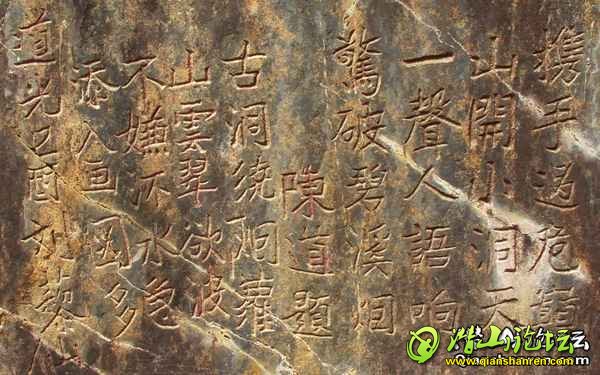 携手過危
山開小洞天
一聲人語响
驚破碧溪烟
陳道題
古洞繞蘿
山雲翠欲波
不嫌水
添入画图多
道光酉刘
潜山论坛
www.qianshanren.com